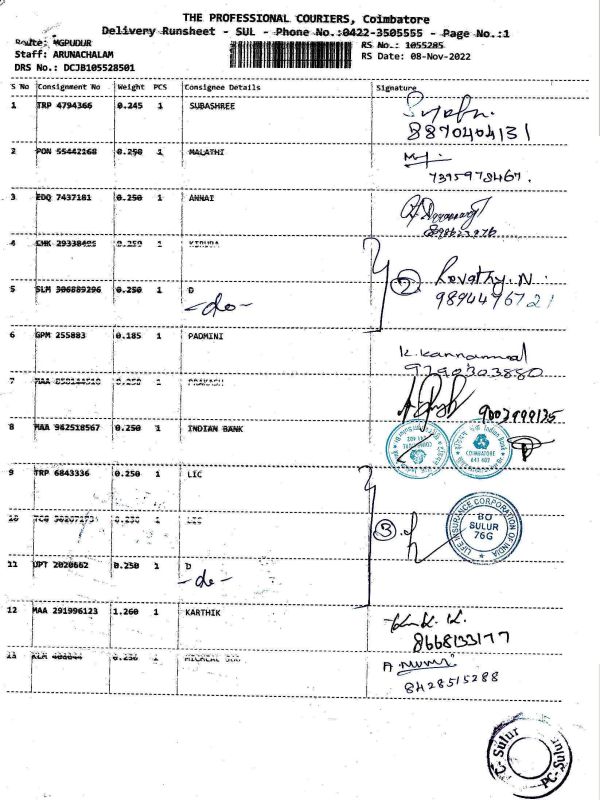 THE PROFESSIONAL COURIERS, Coimbatore
Delivery Runsheet - SUL - Phone No.:0422-3505555 - Page No.:1
Route: MGPUDUR
RS No.: 1055285
Staff: ARUNACHALAM
RS Date: 08-Nov-2022
DRS No.: DCJB105528501
S No Consignment No Weight PCS Consignee Details Signature
1 TRP 4794366 0.245 1 SUBASHREE
8870404131
2 PON 55442168 0.250 1 MALATHI
7395978467.
3 EDQ 7437181 0.250 1 ANNAI
4 0.250 1 KIRUBA
② Revathy.N.
5 SLM 306889296 0.250 1 D
-do-
9894496721
6 GPM 255883 0.185 1 PADMINI
K. Kannammal
9790303880
7 MAA 0.250 1 PRAKASH
8 MAA 942518567 0.250 1 INDIAN BANK
Indian Bank
COIMBATORE
641 402
Indian Bank
COIMBATORE
9 TRP 6843336 0.250 1 LIC
10 1 LIC
③
LIFE INSURANCE CORPORATION OF INDIA
BO
SULUR
76G
11 UPT 2020662 0.250 1 D
-do-
12 MAA 291996123 1.260 1 KARTHIK
8668133177
13 0.250 1
8428515288
PC-Sulur
PC-Sulur